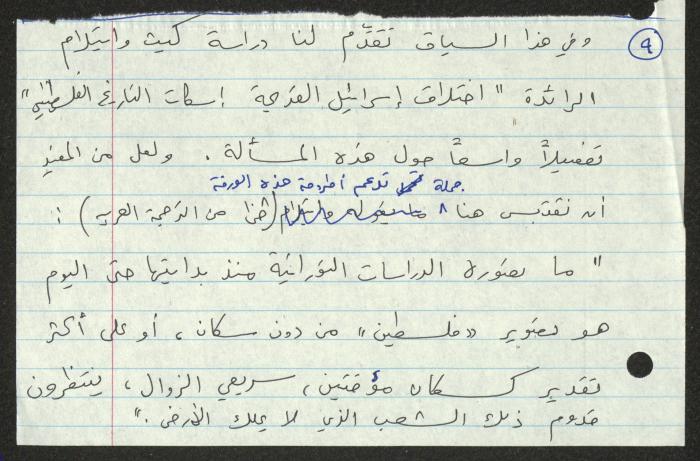 ٩
وفي هذا السياق تقدّم لنا دراسة كيث وايتلام
الرائدة "اختلاق إسرائيل القديمة إسكات التاريخ الفلسطيني"
تفصيلاً واسعاً حول هذه المسألة. ولعل من المفيد
جملة تدعم أطروحة هذه الورقة
أن نقتبس هنا (أخذاً من الترجمة العربية) :
"ما تصوره الدراسات التوراتية منذ بدايتها حتى اليوم
هو تصوير «فلسطين» من دون سكان، أو على أكثر
تقدير كسكان مؤقتين، سريعي الزوال، ينتظرون
قدوم ذلك الشعب الذي لا يملك الأرض."